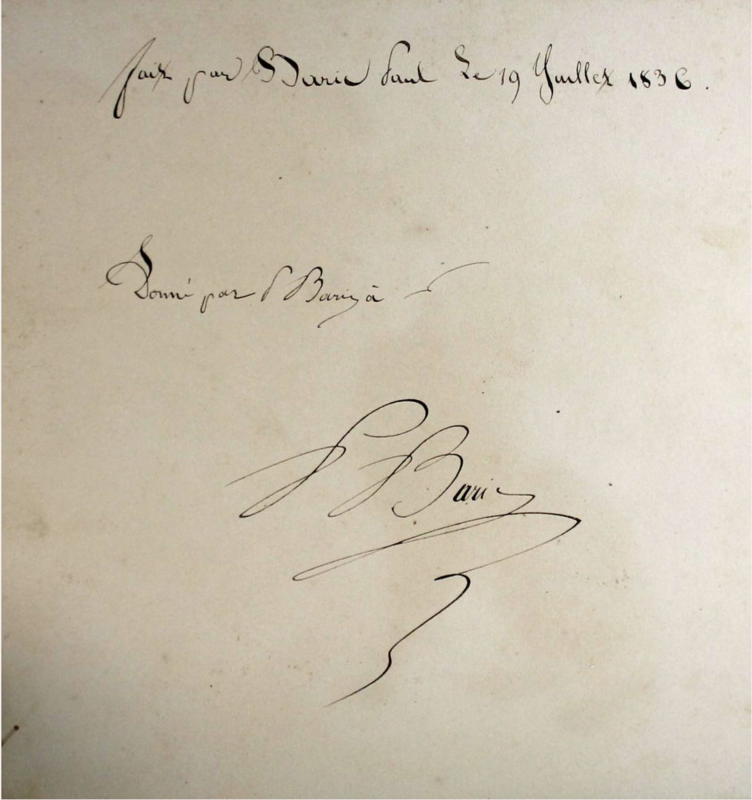 fait par Baric Paul Le 19 Juillet 1836.
Donné par P Baric à
P Baric